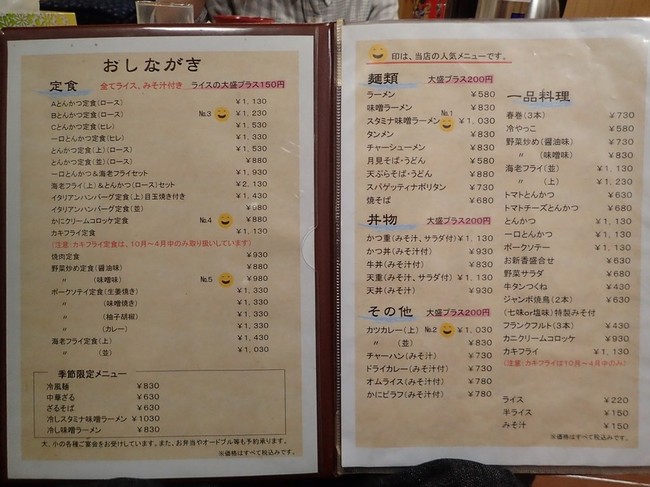 おしながき
定食 全てライス、みそ汁付き ライスの大盛プラス150円
Aとんかつ定食(ロース) ¥1,130
Bとんかつ定食(ロース) №3 ¥1,230
Cとんかつ定食(ヒレ) ¥1,530
一口とんかつ定食(ヒレ) ¥1,330
とんかつ定食(上)(ロース) ¥1,530
とんかつ定食(並)(ロース) ¥880
一口とんかつ&海老フライセット ¥1,930
海老フライ(上)&とんかつ(ロース)セット ¥2,130
イタリアンハンバーグ定食(上)目玉焼き付き ¥1,430
イタリアンハンバーグ定食(並) ¥980
かにクリームコロッケ定食 №4 ¥880
カキフライ定食 ¥1,330
(注意 カキフライ定食は、10月~4月中のみ取り扱いしています)
焼肉定食 ¥930
野菜炒め定食(醤油味) ¥880
〃 (味噌味) №5 ¥980
ポークソテイ定食(生姜焼き) ¥1,430
〃 (味噌焼き) ¥1,330
〃 (柚子胡椒) ¥1,330
〃 (カレー) ¥1,330
海老フライ定食(上) ¥1,430
〃 (並) ¥1,330
季節限定メニュー
冷風麺 ¥830
中華ざる ¥630
ざるそば ¥630
冷しスタミナ味噌ラーメン ¥1030
冷し味噌ラーメン ¥830
大、小の各種ご宴会をお受けしています。また、お弁当やオードブル等も予約承ります。
※価格はすべて税込みです。
印は、当店の人気メニューです。
麺類 大盛プラス200円
ラーメン ¥580
味噌ラーメン ¥830
スタミナ味噌ラーメン №1 ¥1,030
タンメン ¥830
チャーシューメン ¥830
月見そば・うどん ¥580
天ぷらそば・うどん ¥880
スパゲッティナポリタン ¥730
焼そば ¥680
丼物 大盛プラス200円
かつ重(みそ汁、サラダ付) ¥1,130
かつ丼(みそ汁付) ¥930
牛丼(みそ汁付) ¥830
天重(みそ汁、サラダ付) ¥1,130
天丼(みそ汁) ¥930
その他 大盛プラス200円
カツカレー(上) №2 ¥1,030
〃 (並) ¥830
チャーハン(みそ汁) ¥730
ドライカレー(みそ汁) ¥730
オムライス(みそ汁) ¥780
かにピラフ(みそ汁) ¥780
一品料理
春巻(3本) ¥730
冷やっこ ¥580
野菜炒め(醤油味) ¥730
〃 (味噌味) ¥830
海老フライ(並) ¥1,130
〃 (上) ¥1,230
トマトとんかつ ¥630
トマトチーズとんかつ ¥680
とんかつ ¥1,130
一口とんかつ ¥1,130
ポークソテー ¥1,130
お新香盛合せ ¥630
野菜サラダ ¥680
牛タンつくね ¥430
ジャンボ焼鳥(2本) ¥630
(七味or塩味)特製みそ付
フランクフルト(3本) ¥430
カニクリームコロッケ ¥930
カキフライ ¥1,130
(注意:カキフライは10月~4月中のみ)
ライス ¥220
半ライス ¥150
みそ汁 ¥150
※価格はすべて税込みです。